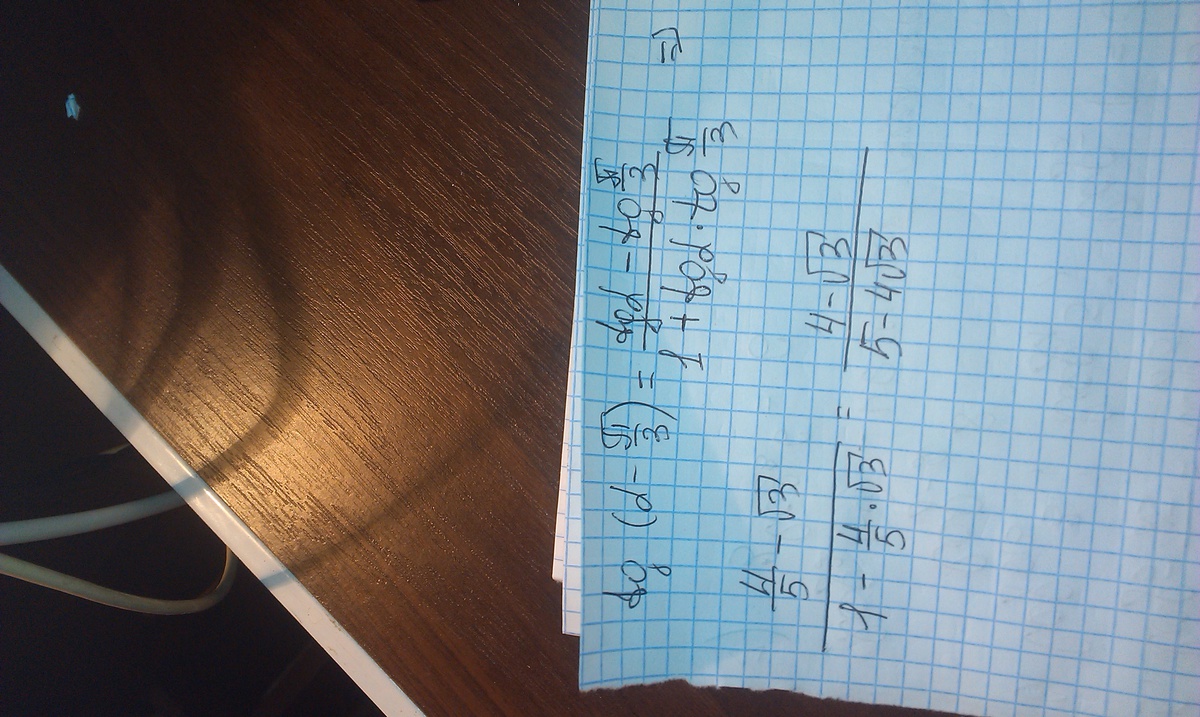 tg (α - π/3) = (tgα - tg π/3)/(1 + tgα · tg π/3) ⇒
(4/5 - √3)/(1 - 4/5 · √3) = (4 - √3)/(5 - 4√3)